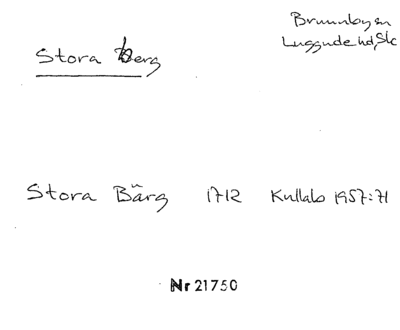 Brunnby sn
Luggude hd, Sk
Stora berg
Stora Bärg 1712 Kullabo 1957:71
Nr 21750